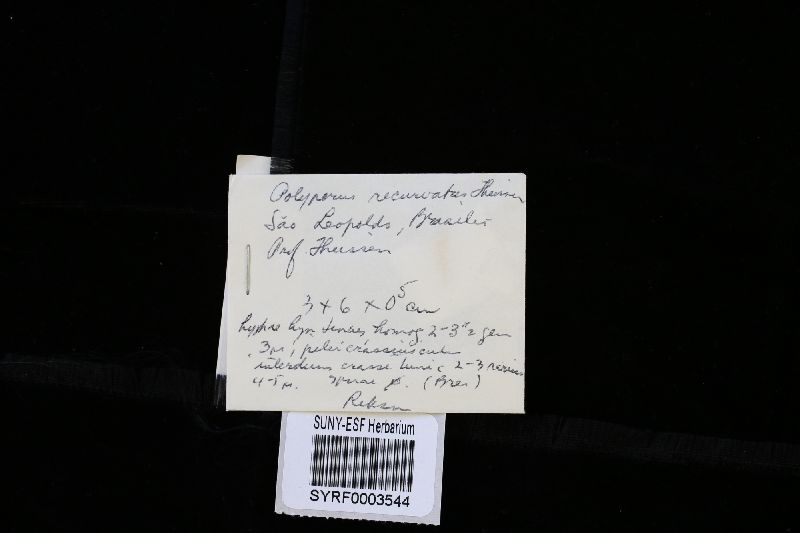 Polyporus recurvatus Theissen
São Leopoldo, Brasilia
Prof Theissen
3 × 6 × 0⁵ cm
hyphae hym tenues homog 2-3μ gen
3μ, pelei crassiuscul
interdum crasse tunic 2-3 rarius
4-5μ. sporae (Bres)
SUNY-ESF Herbarium
SYRF0003544